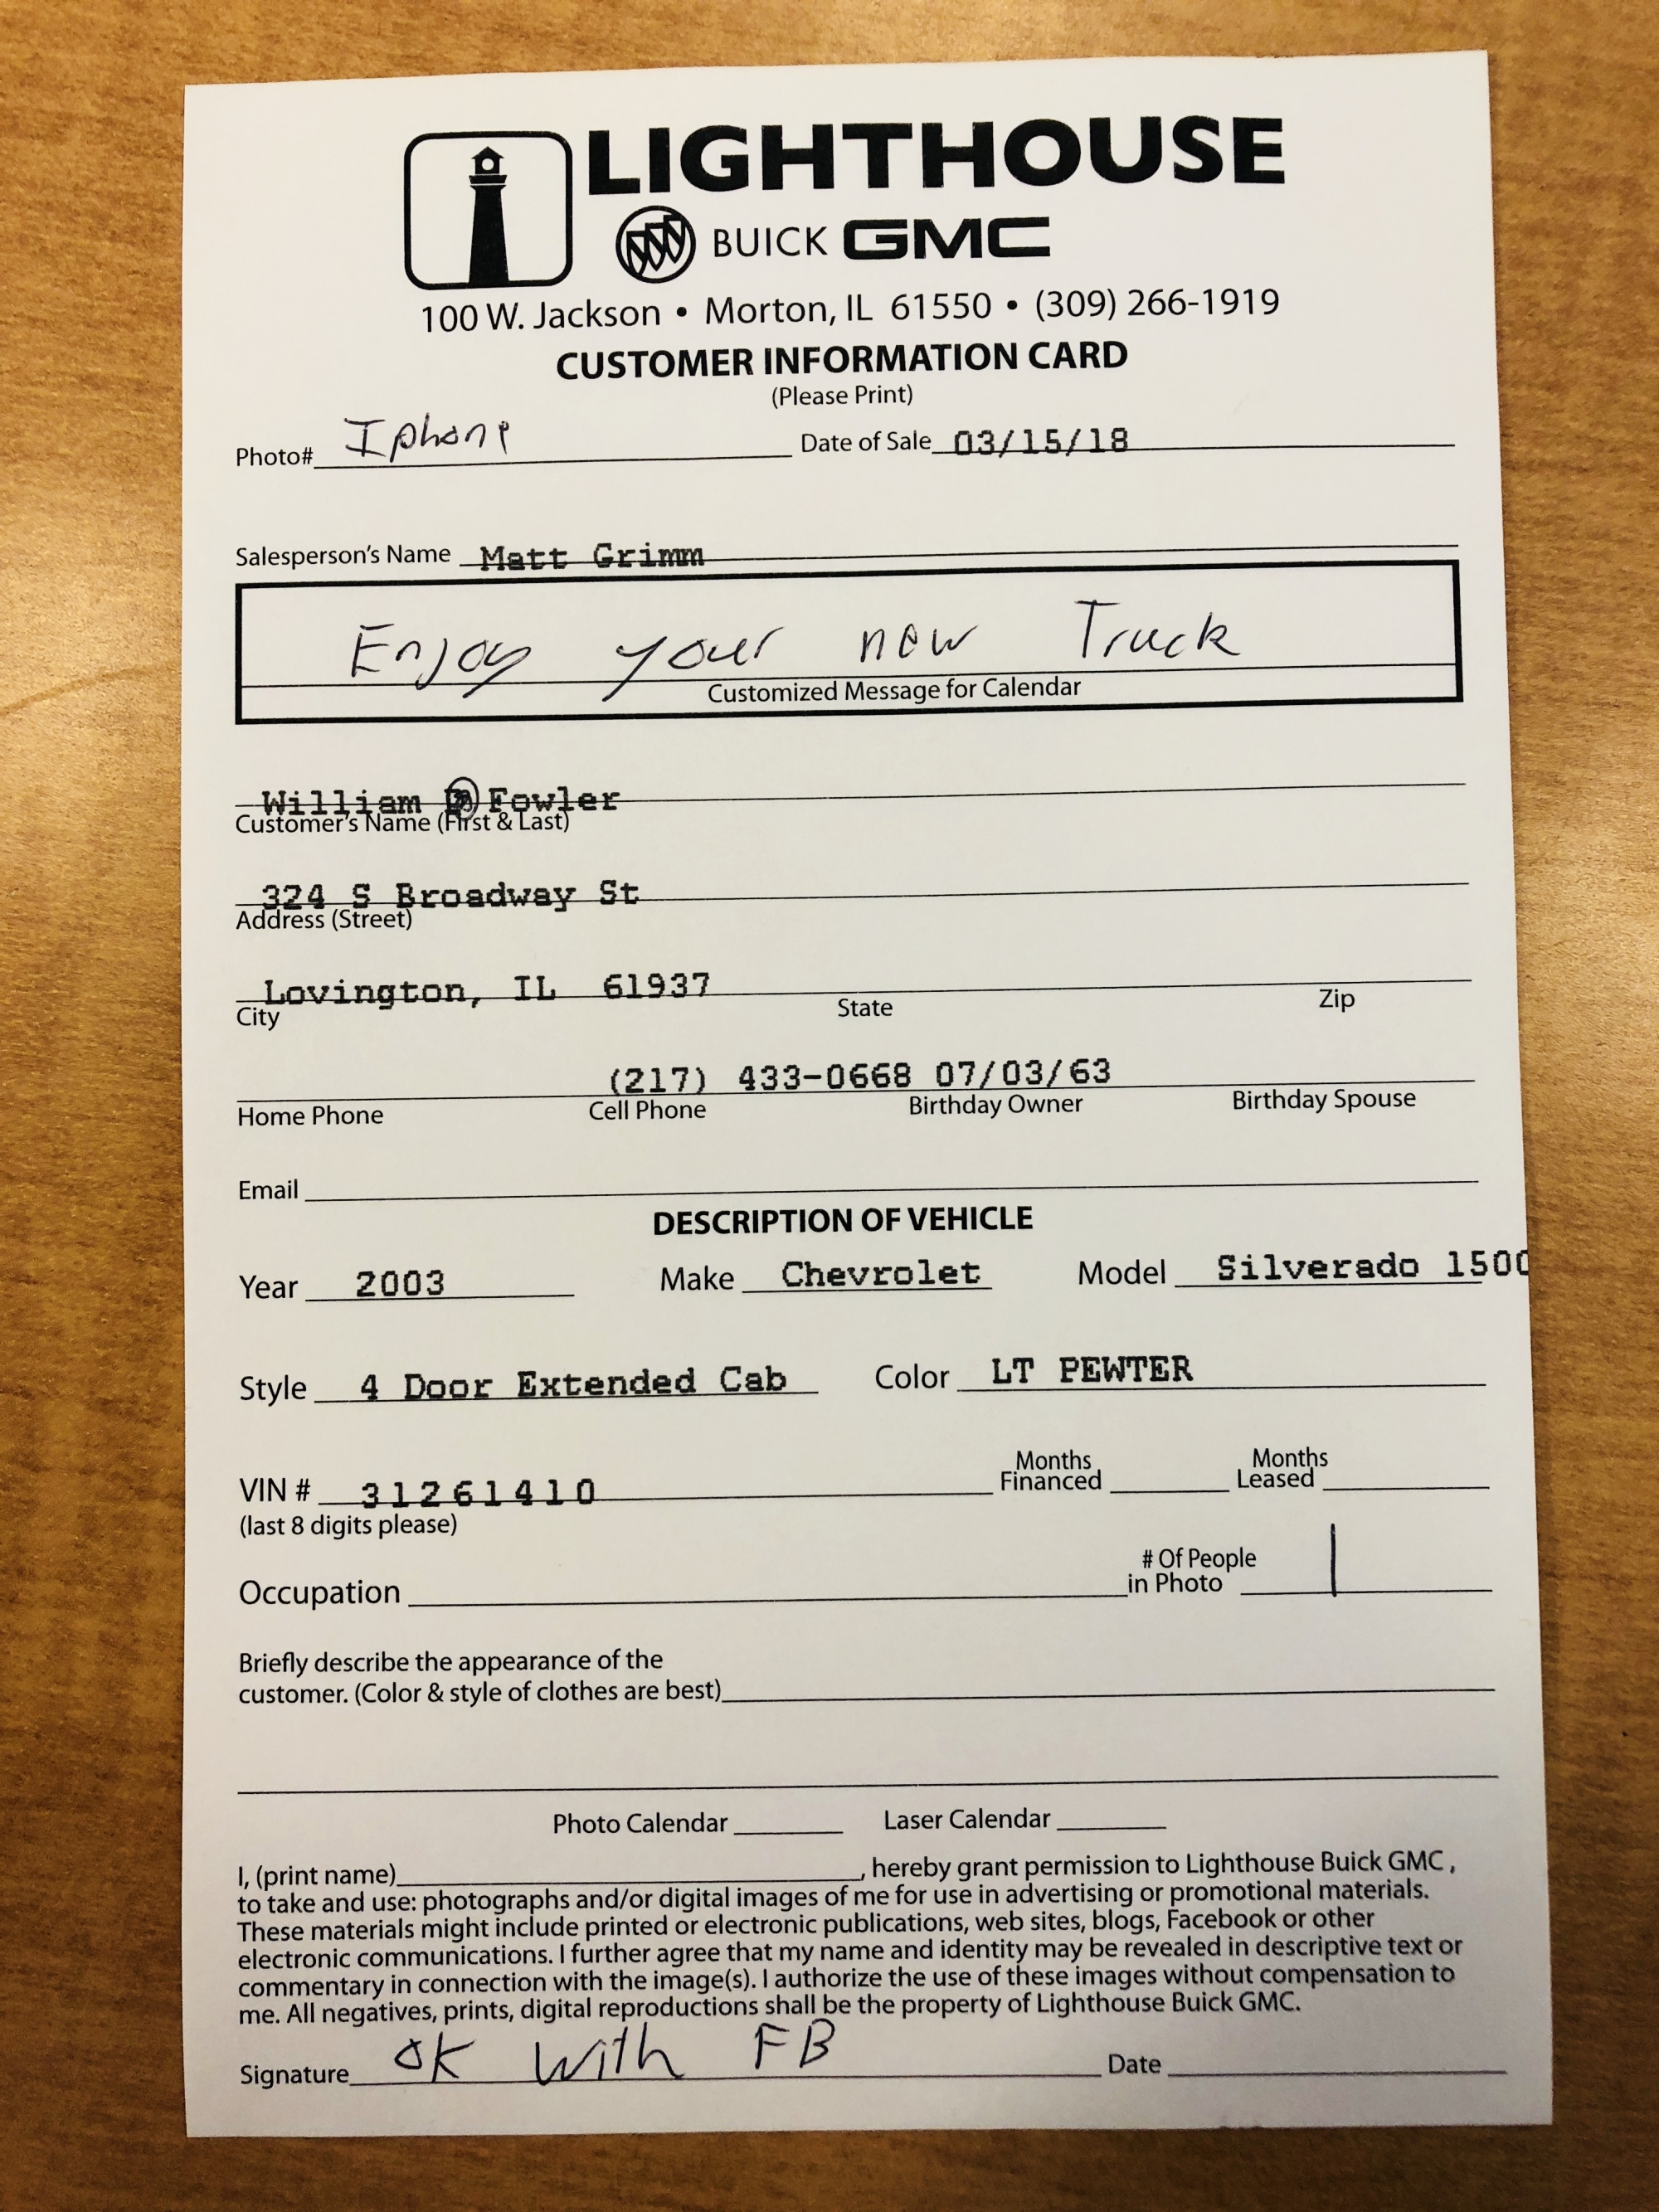 LIGHTHOUSE
BUICK GMC
100 W. Jackson • Morton, IL 61550 • (309) 266-1919
CUSTOMER INFORMATION CARD
(Please Print)
Photo# Iphone Date of Sale 03/15/18
Salesperson's Name Matt Grimm
Enjoy your new Truck
Customized Message for Calendar
William Fowler
Customer's Name (First & Last)
324 S Broadway St
Address (Street)
Lovington, IL 61937
City State Zip
(217) 433-0668 07/03/63
Home Phone Cell Phone Birthday Owner Birthday Spouse
Email
DESCRIPTION OF VEHICLE
Year 2003 Make Chevrolet Model Silverado 1500
Style 4 Door Extended Cab Color LT PEWTER
Months Months
VIN # 31261410 Financed Leased
(last 8 digits please)
# Of People
Occupation in Photo 1
Briefly describe the appearance of the
customer. (Color & style of clothes are best)
Photo Calendar Laser Calendar
I, (print name) , hereby grant permission to Lighthouse Buick GMC ,
to take and use: photographs and/or digital images of me for use in advertising or promotional materials.
These materials might include printed or electronic publications, web sites, blogs, Facebook or other
electronic communications. I further agree that my name and identity may be revealed in descriptive text or
commentary in connection with the image(s). I authorize the use of these images without compensation to
me. All negatives, prints, digital reproductions shall be the property of Lighthouse Buick GMC.
Signature OK with FB Date